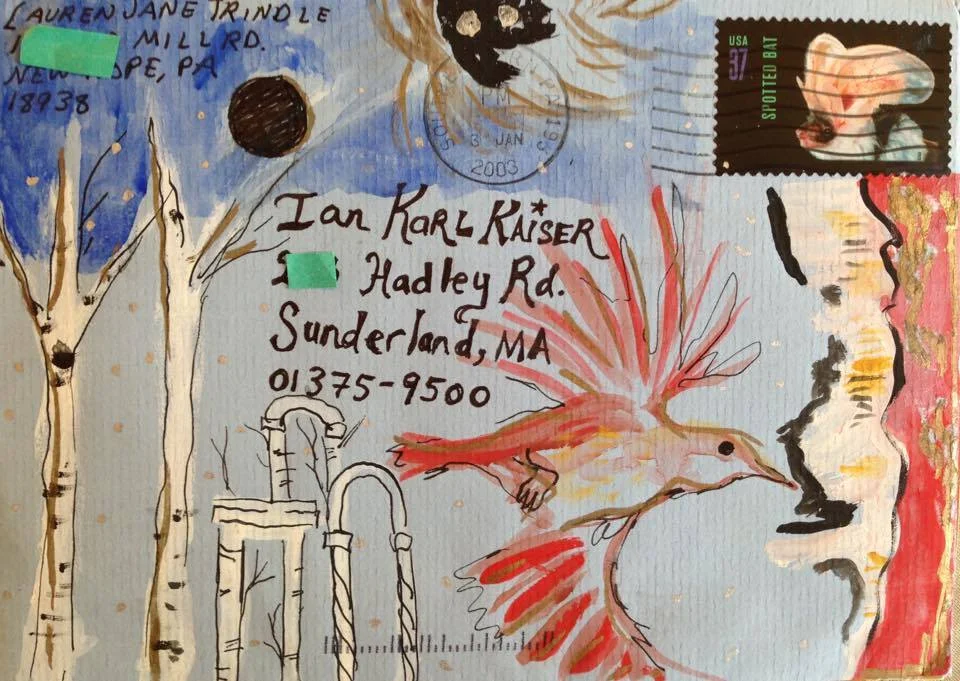 LAUREN JANE TRINDLE
MILL RD.
NEW HOPE, PA
18938
USA
37
SPOTTED BAT
PA 193
PM
3 JAN
2003
Ian KARL KAiSER
Hadley Rd.
Sunderland, MA
01375-9500